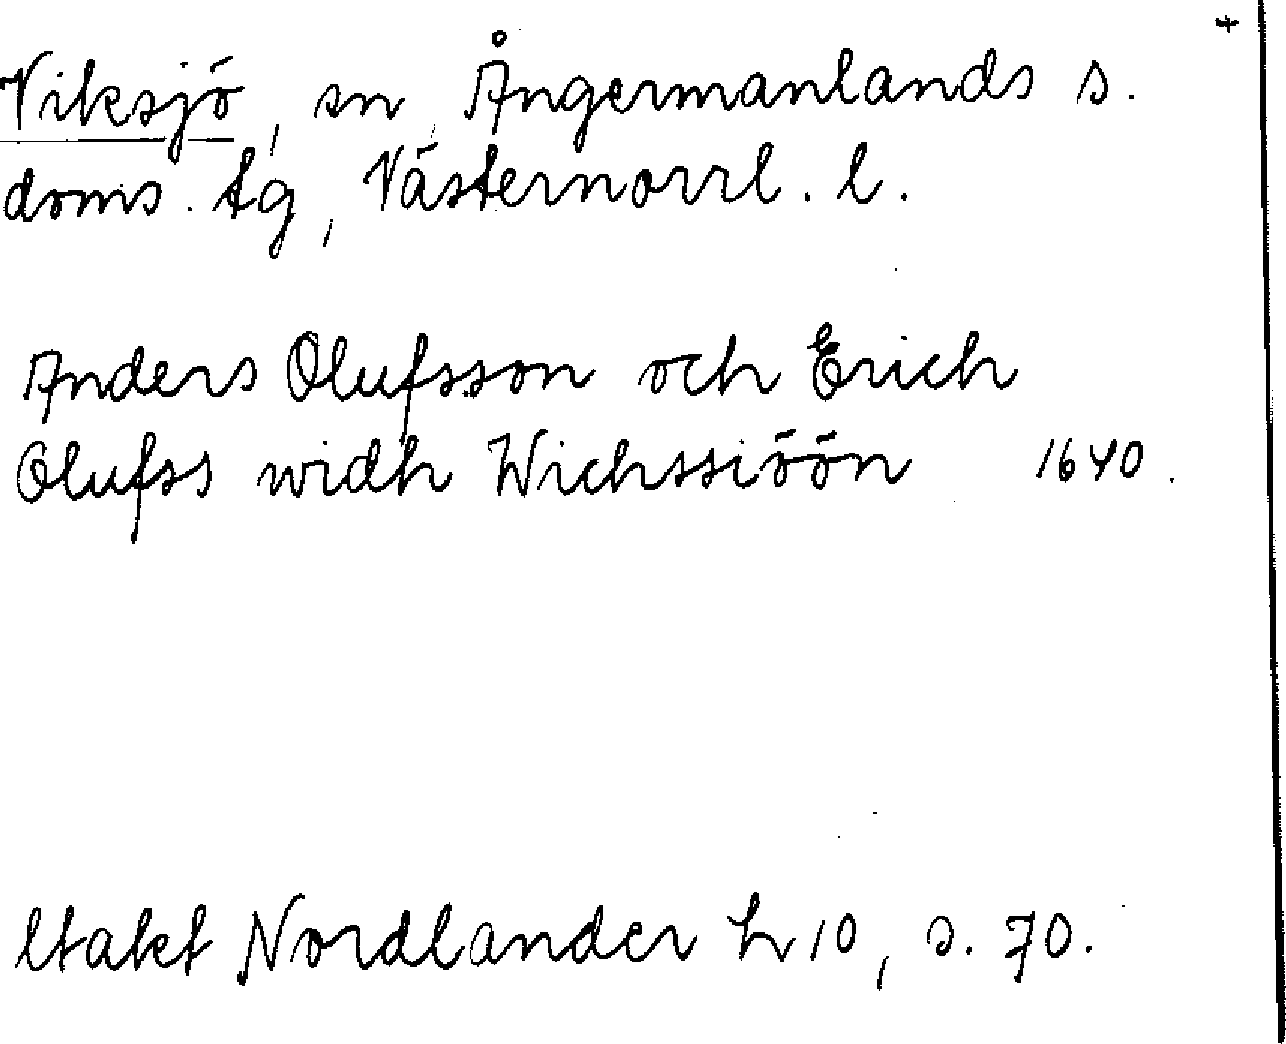 Viksjö, sn, Ångermanlands s.
doms. tg, Västernorrl. l.
Anders Olufsson och Erich
Olufss widh Wichssiöön 1640.
Utakt Nordlander h 10, s. 70.